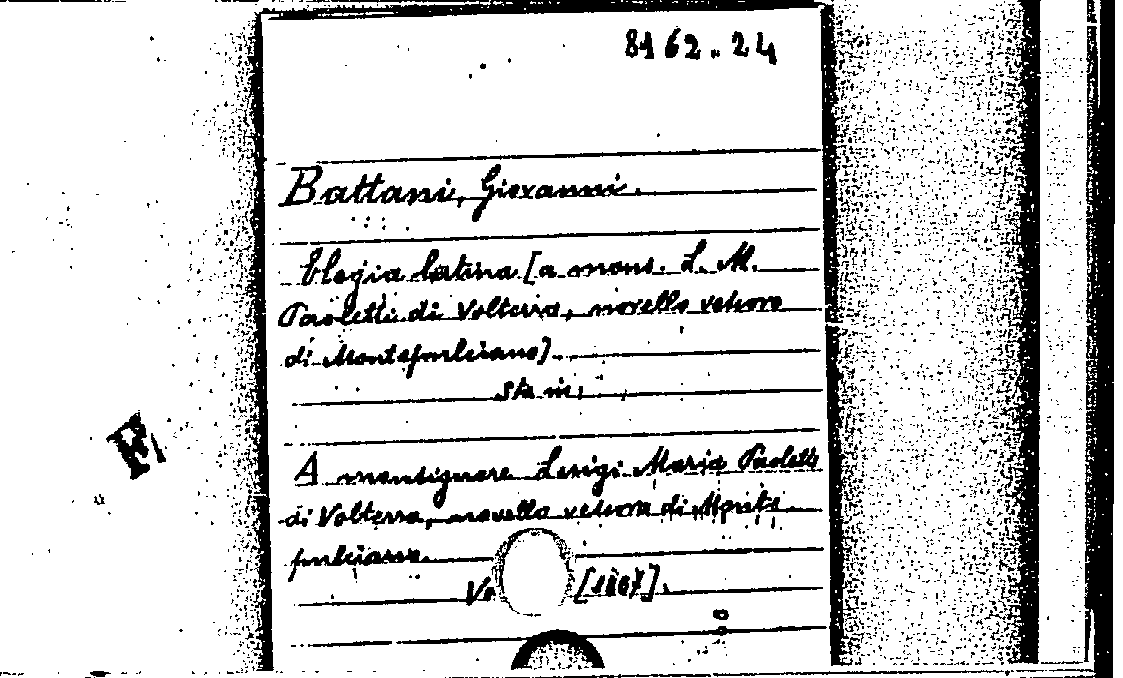 8162.24
Battani, Giovanni.
Elegia latina [a mons. L. M.
Paoletti di Volterra, novello vescovo
di Montepulciano].
Sta in:
A monsignore Luigi Maria Paoletti
di Volterra, novello vescovo di Monte-
pulciano.
F